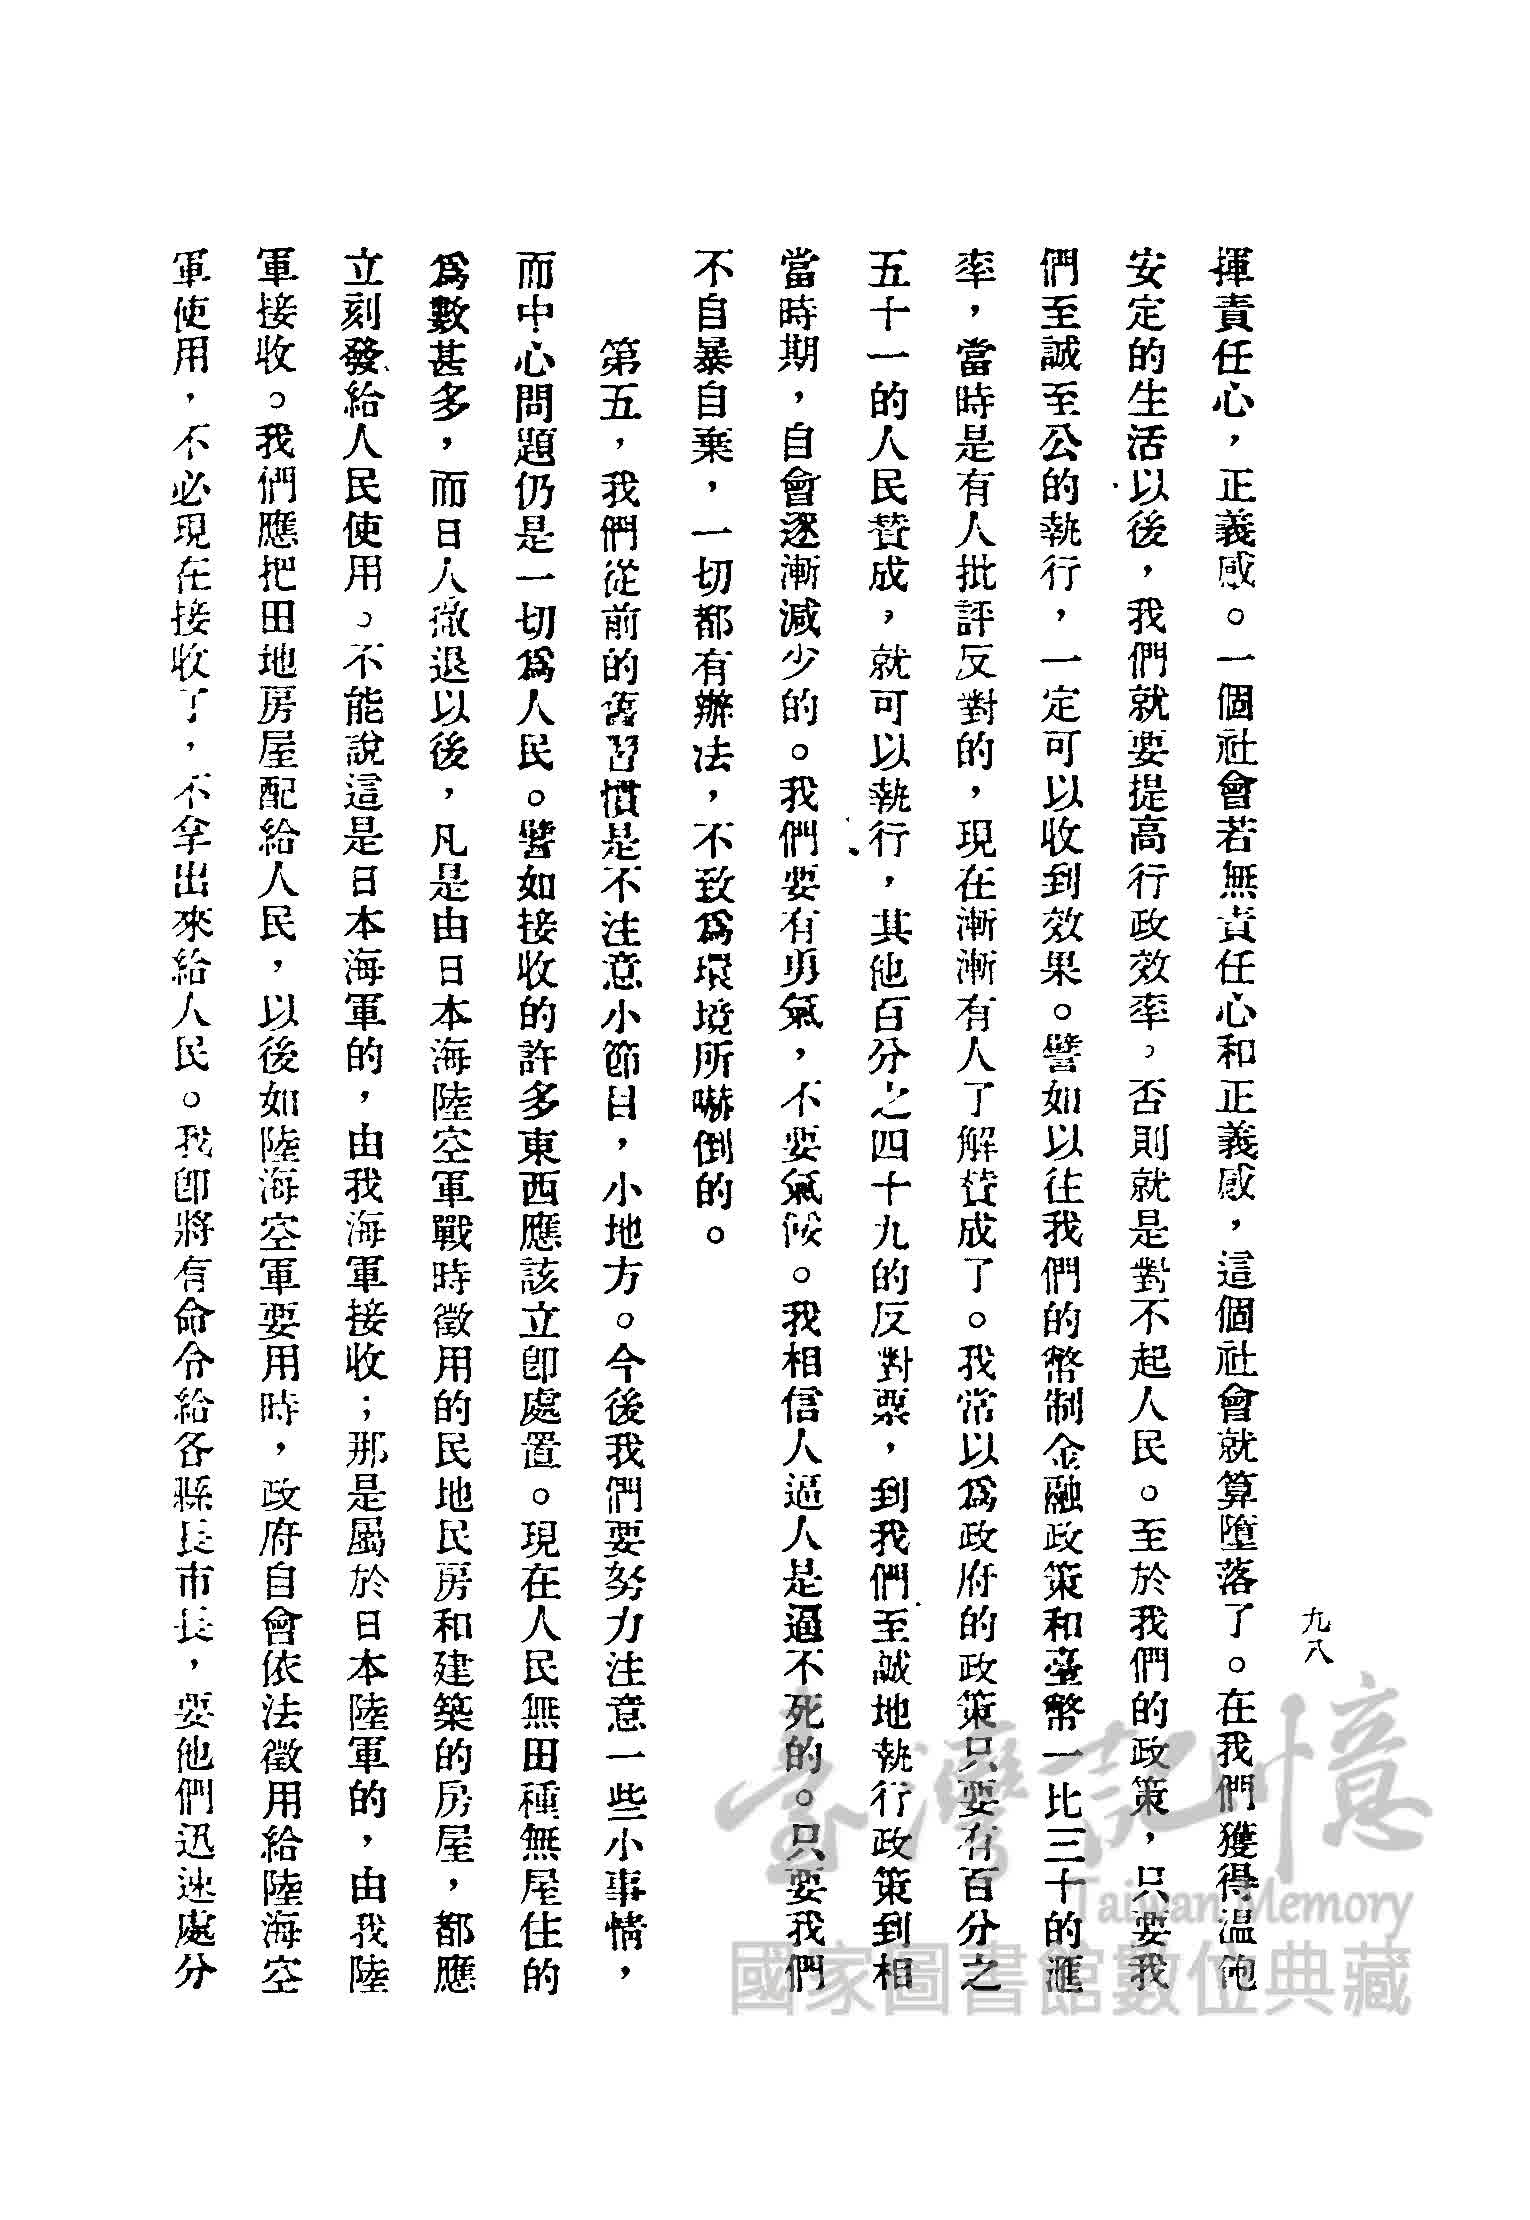 九八
揮責任心，正義感。一個社會若無責任心和正義感，這個社會就算墮落了。在我們獲得溫飽
安定的生活以後，我們就要提高行政效率。否則就是對不起人民。至於我們的政策，只要我
們至誠至公的執行，一定可以收到效果。譬如以往我們的幣制金融政策和臺幣一比三十的滙
率，當時是有人批評反對的，現在漸漸有人了解贊成了。我常以爲政府的政策只要有百分之
五十一的人民贊成，就可以執行，其他百分之四十九的反對票，到我們至誠地執行政策到相
當時期，自會逐漸減少的。我們要有勇氣，不要氣餒。我相信人逼人是逼不死的。只要我們
不自暴自棄，一切都有辦法，不致爲環境所嚇倒的。
第五，我們從前的舊習慣是不注意小節目，小地方。今後我們要努力注意一些小事情，
而中心問題仍是一切爲人民。譬如接收的許多東西應該立卽處置。現在人民無田種無屋住的
爲數甚多，而日人撤退以後，凡是由日本海陸空軍戰時徵用的民地民房和建築的房屋，都應
立刻發給人民使用。不能說這是日本海軍的，由我海軍接收；那是屬於日本陸軍的，由我陸
軍接收。我們應把田地房屋配給人民，以後如陸海空軍要用時，政府自會依法徵用給陸海空
軍使用，不必現在接收了，不拿出來給人民。我卽將有命令給各縣長市長，要他們迅速處分
臺灣記憶
Taiwan Memory
國家圖書館數位典藏